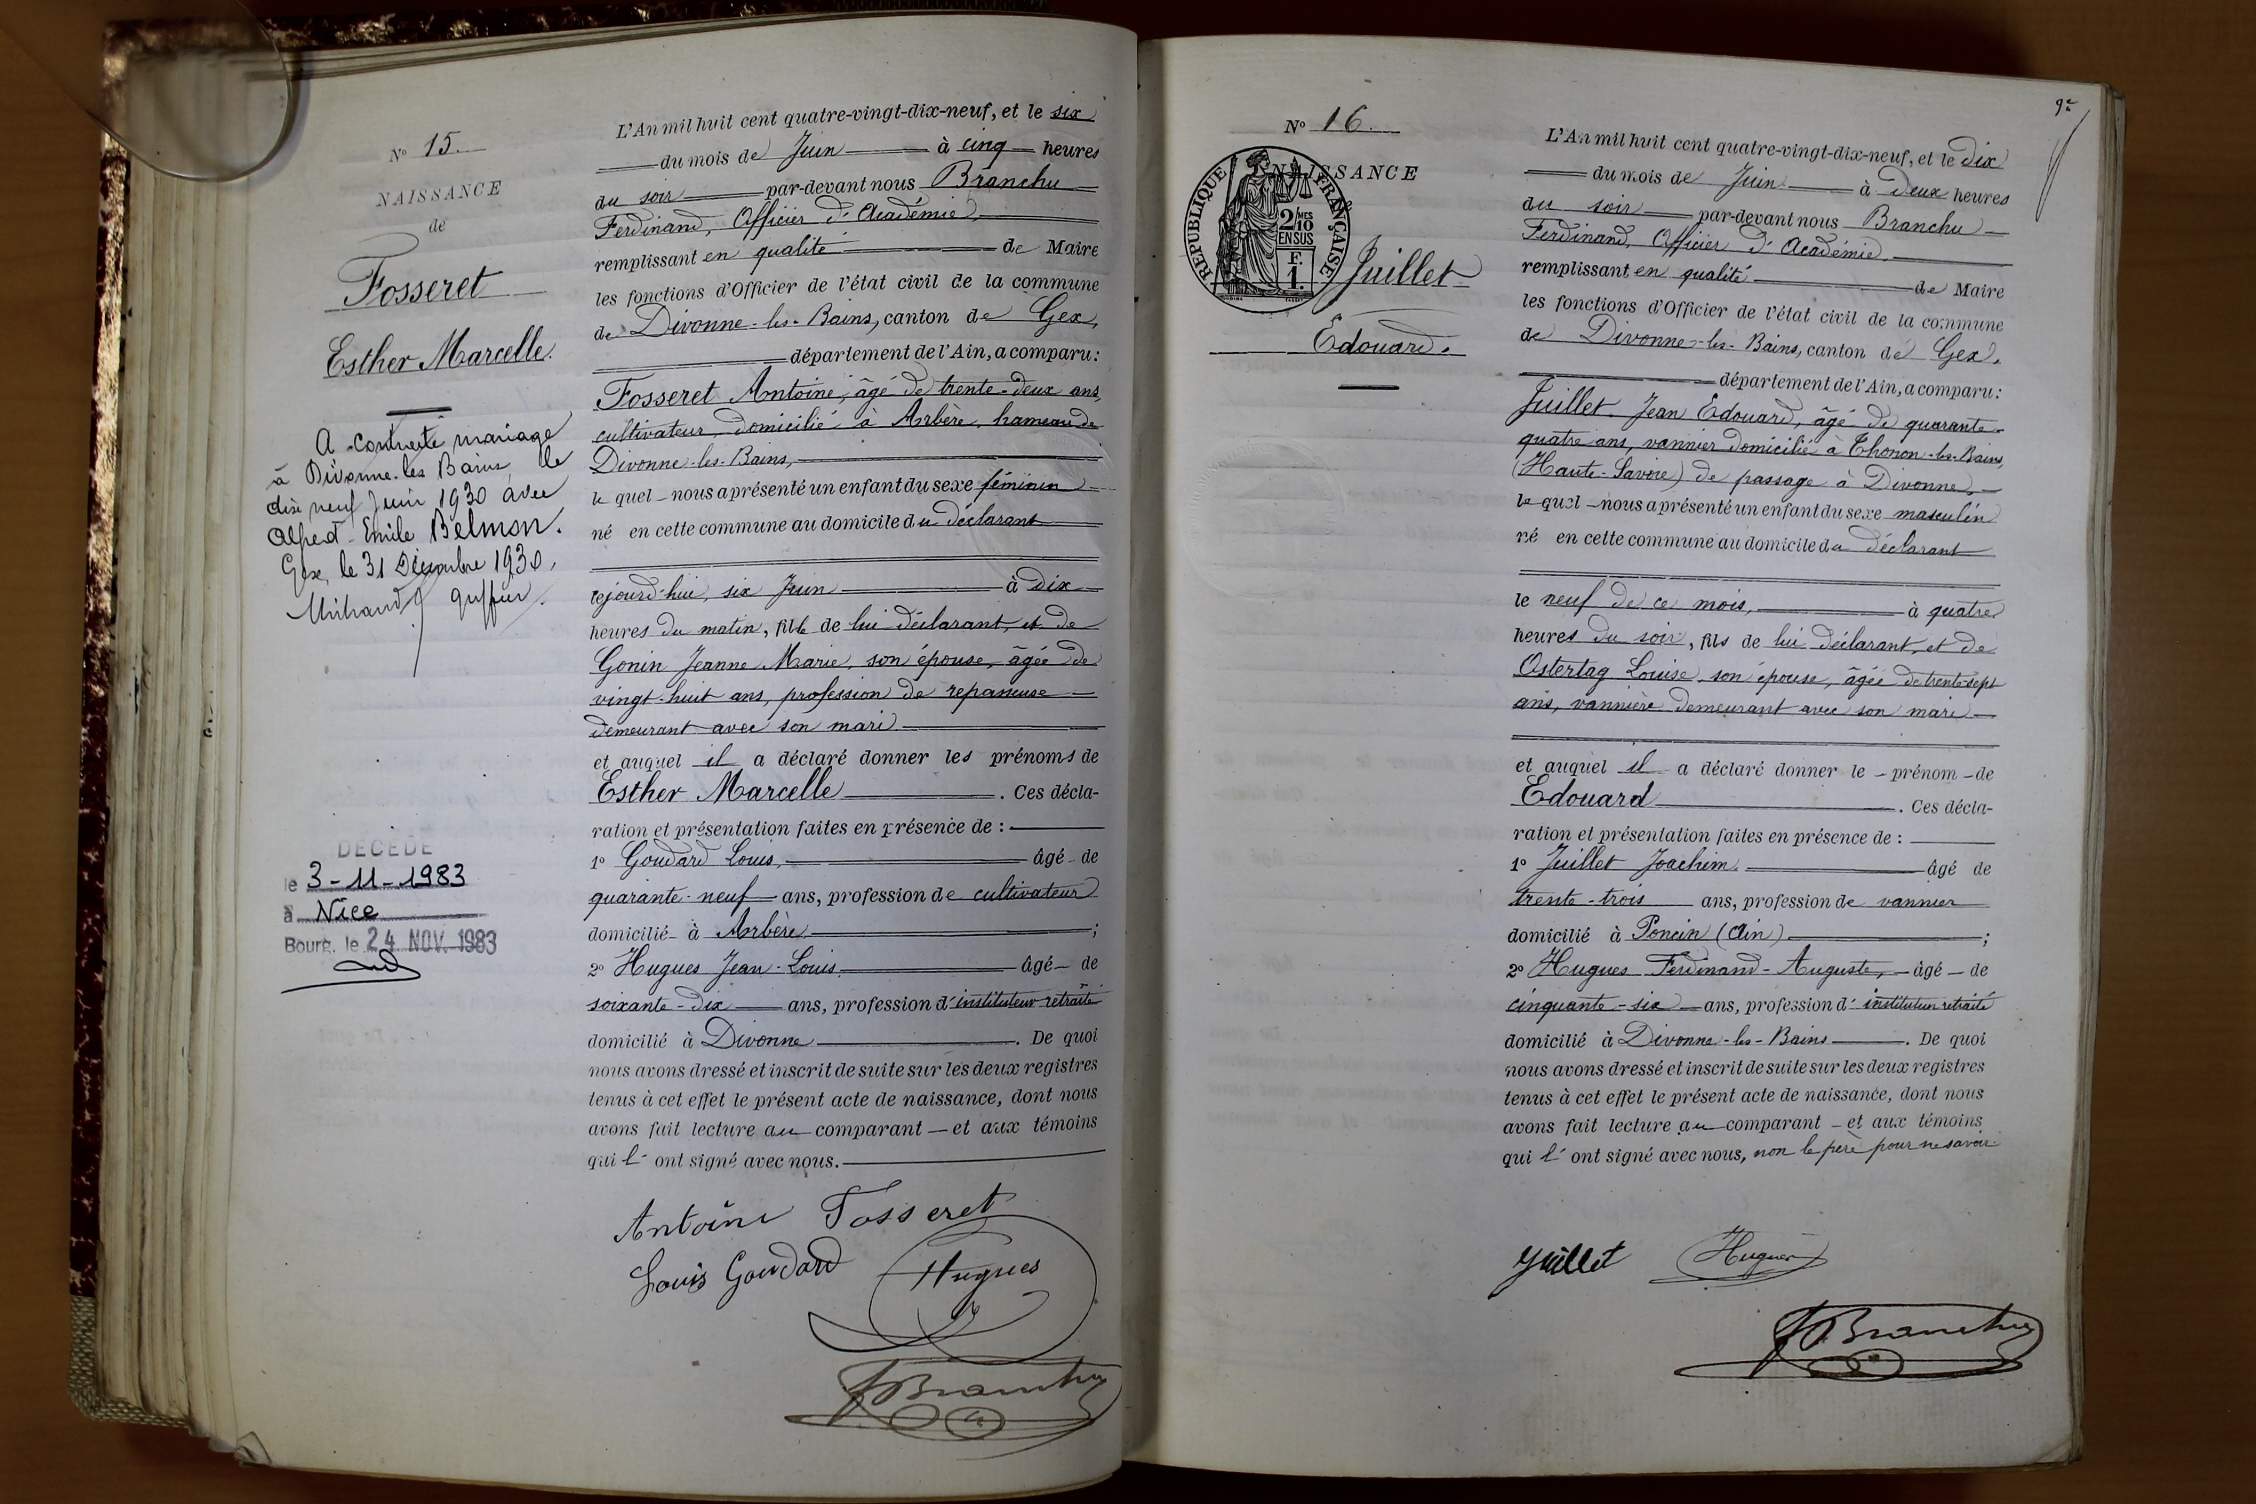 N° 15.
NAISSANCE
de
Fosseret
Esther Marcelle.
A contracté mariage
à Divonne-les Bains, le
dix neuf Juin 1930 avec
Alfred-Emile Belmon.
Gex, le 31 Décembre 1930,
greffier.
DÉCÉDÉ
le 3-11-1983
à Nice
Bourg, le 24 NOV. 1983
L'An mil huit cent quatre-vingt-dix-neuf, et le six
du mois de Juin à cinq heures
du soir par-devant nous Branchu
Ferdinand, Officier d'Académie,
remplissant en qualité de Maire
les fonctions d'Officier de l'état civil de la commune
de Divonne-les-Bains, canton de Gex,
département de l'Ain, a comparu:
Fosseret Antoine, âgé de trente-deux ans,
cultivateur, domicilié à Arbère, hameau de
Divonne-les-Bains,
le quel nous a présenté un enfant du sexe féminin
né en cette commune au domicile du déclarant
cejourd'hui, six Juin à dix
heures du matin, fille de lui déclarant, et de
Gonin Jeanne Marie, son épouse, âgée de
vingt-huit ans, profession de repasseuse
demeurant avec son mari
et auquel il a déclaré donner les prénoms de
Esther Marcelle. Ces décla-
ration et présentation faites en présence de :
1° Goudard Louis, âgé de
quarante-neuf ans, profession de cultivateur
domicilié à Arbère ;
2° Hugues Jean-Louis âgé de
soixante-dix ans, profession d'instituteur retraité
domicilié à Divonne. De quoi
nous avons dressé et inscrit de suite sur les deux registres
tenus à cet effet le présent acte de naissance, dont nous
avons fait lecture au comparant et aux témoins
qui l'ont signé avec nous.
Antoine Fosseret
Louis Goudard Hugues
FBranchu
9e
N° 16.
NAISSANCE
RÉPUBLIQUE FRANÇAISE
2/10MES
EN SUS
F.
1.
Juillet
Edouard.
L'An mil huit cent quatre-vingt-dix-neuf, et le dix
du mois de Juin à deux heures
du soir par-devant nous Branchu
Ferdinand, Officier d'Académie
remplissant en qualité de Maire
les fonctions d'Officier de l'état civil de la commune
de Divonne-les-Bains, canton de Gex,
département de l'Ain, a comparu:
Juillet Jean Edouard, âgé de quarante-
quatre ans, vannier domicilié à Thonon-les-Bains,
(Haute-Savoie) de passage à Divonne,
le quel nous a présenté un enfant du sexe masculin
né en cette commune au domicile du déclarant
le neuf de ce mois, à quatre
heures du soir, fils de lui déclarant, et de
Ostertag Louise, son épouse, âgée de trente-sept
ans, vannière demeurant avec son mari
et auquel il a déclaré donner le prénom de
Edouard. Ces décla-
ration et présentation faites en présence de :
1° Juillet Joachim âgé de
trente-trois ans, profession de vannier
domicilié à Poncin (Ain) ;
2° Hugues Ferdinand-Auguste, âgé de
cinquante-six ans, profession d'instituteur retraité
domicilié à Divonne-les-Bains. De quoi
nous avons dressé et inscrit de suite sur les deux registres
tenus à cet effet le présent acte de naissance, dont nous
avons fait lecture au comparant et aux témoins
qui l'ont signé avec nous, non le père pour ne savoir
Juillet Hugues
FBranchu